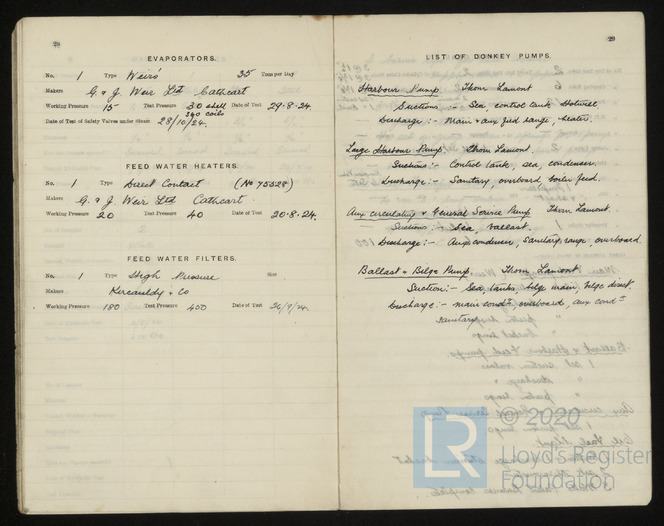 28
EVAPORATORS.
No. 1 Type Weir's 35 Tons per Day
Makers G & J. Weir Ltd Cathcart
Working Pressure 15 Test Pressure 30 shell Date of Test 29-8-24.
340 coils
Date of Test of Safety Valves under Steam 28/10/24.
FEED WATER HEATERS.
No. 1 Type Direct Contact (No 75528)
Makers G. & J. Weir Ltd Cathcart.
Working Pressure 20 Test Pressure 40 Date of Test 20-8-24.
FEED WATER FILTERS.
No. 1 Type High Pressure Size
Makers & Co
Working Pressure 180 Test Pressure 450 Date of Test /9/24.
29
LIST OF DONKEY PUMPS.
Harbour Pump. Thom Lamont
Suctions :- Sea, control tank Hotwell
Discharge :- Main & aux feed range, heater.
Large Harbour Pump. Thom Lamont.
Suctions :- Control tank, sea, condenser.
Discharge :- Sanitary, overboard, boiler feed.
Aux circulating & General Service Pump Thom Lamont.
Suctions :- Sea, ballast.
Discharge :- Aux condenser, sanitary, range, overboard
Ballast & Bilge Pump. Thom Lamont
Suction :- Sea, tanks, bilge main, bilge direct.
Discharge :- main condr, overboard, aux condr
sanitary
LR
© 2020
Lloyd's Register
Foundation